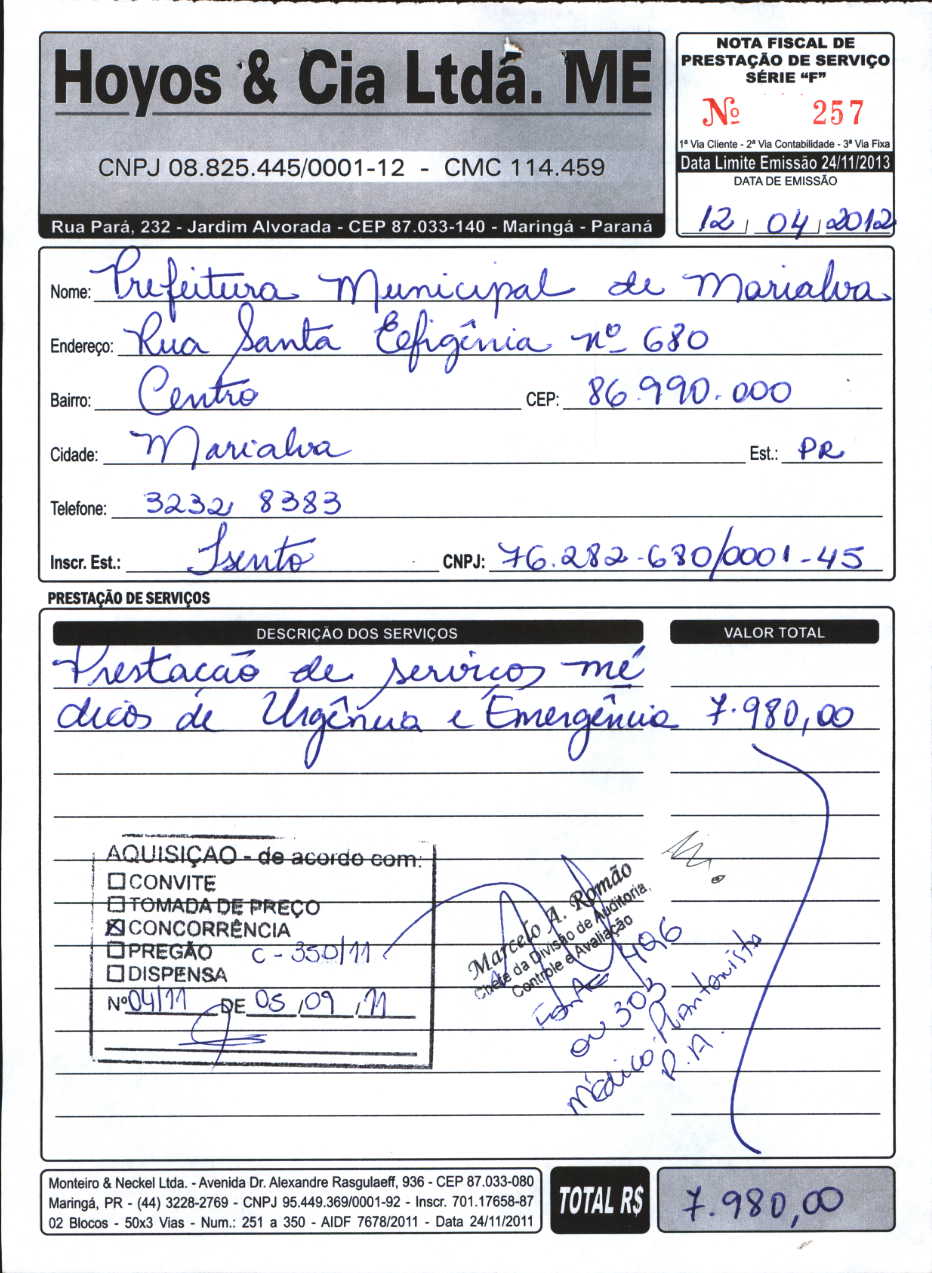 Hoyos & Cia Ltda. ME
CNPJ 08.825.445/0001-12 - CMC 114.459
Rua Pará, 232 - Jardim Alvorada - CEP 87.033-140 - Maringá - Paraná
NOTA FISCAL DE
PRESTAÇÃO DE SERVIÇO
SÉRIE “F”
Nº 257
1ª Via Cliente - 2ª Via Contabilidade - 3ª Via Fixa
Data Limite Emissão 24/11/2013
DATA DE EMISSÃO
12 / 04 / 2012
Nome: Prefeitura Municipal de Marialva
Endereço: Rua Santa Eefigênia nº 680
Bairro: Centro CEP: 86.990.000
Cidade: Marialva Est.: PR
Telefone: 3232 8383
Inscr. Est.: Isento CNPJ: 76.282-680/0001-45
PRESTAÇÃO DE SERVIÇOS
DESCRIÇÃO DOS SERVIÇOS VALOR TOTAL
Prestacão de servicos mé
dicos de Urgência e Emergência 7.980,00
AQUISIÇAO - de acordo com:
CONVITE
TOMADA DE PREÇO
CONCORRÊNCIA
PREGÃO C - 350/11
DISPENSA
Nº 04/11 DE 05 /09 /11
Marcelo A. Romão
Chefe da Divisão de Auditoria,
Controle e Avaliação
496
ou 303
Médico Plantonista
P.A.
Monteiro & Neckel Ltda. - Avenida Dr. Alexandre Rasgulaeff, 936 - CEP 87.033-080
Maringá, PR - (44) 3228-2769 - CNPJ 95.449.369/0001-92 - Inscr. 701.17658-87
02 Blocos - 50x3 Vias - Num.: 251 a 350 - AIDF 7678/2011 - Data 24/11/2011
TOTAL R$ 7.980,00